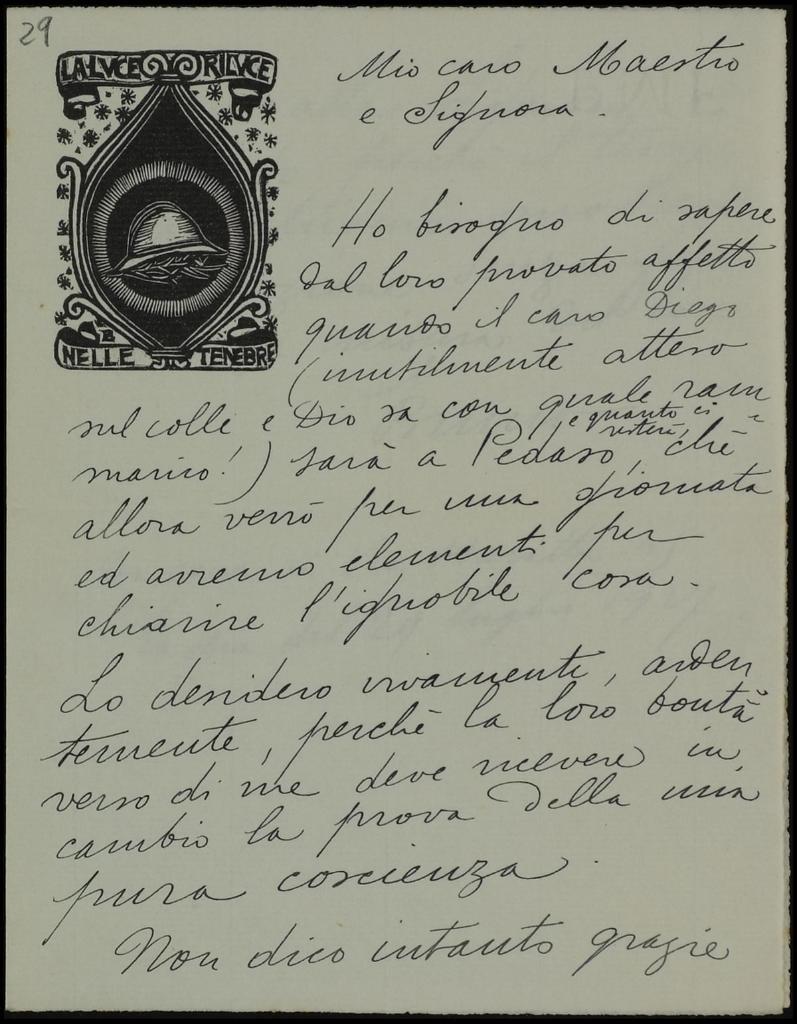 29
LA·LVCE RILVCE
NELLE TENEBRE
Mio caro Maestro
e Signora.
Ho bisogno di sapere
dal loro provato affetto
quando il caro Diego
(inutilmente atteso
sul colle e Dio sa con quale ram
marico!) sarà a Pedaso, e quanto ci resterà, chè
allora verrò per una giornata
ed avremo elementi per
chiarire l'ignobile cosa.
Lo desidero vivamente, arden
temente, perchè la loro bontà
verso di me deve ricevere in
cambio la prova della mia
pura coscienza.
Non dico intanto grazie